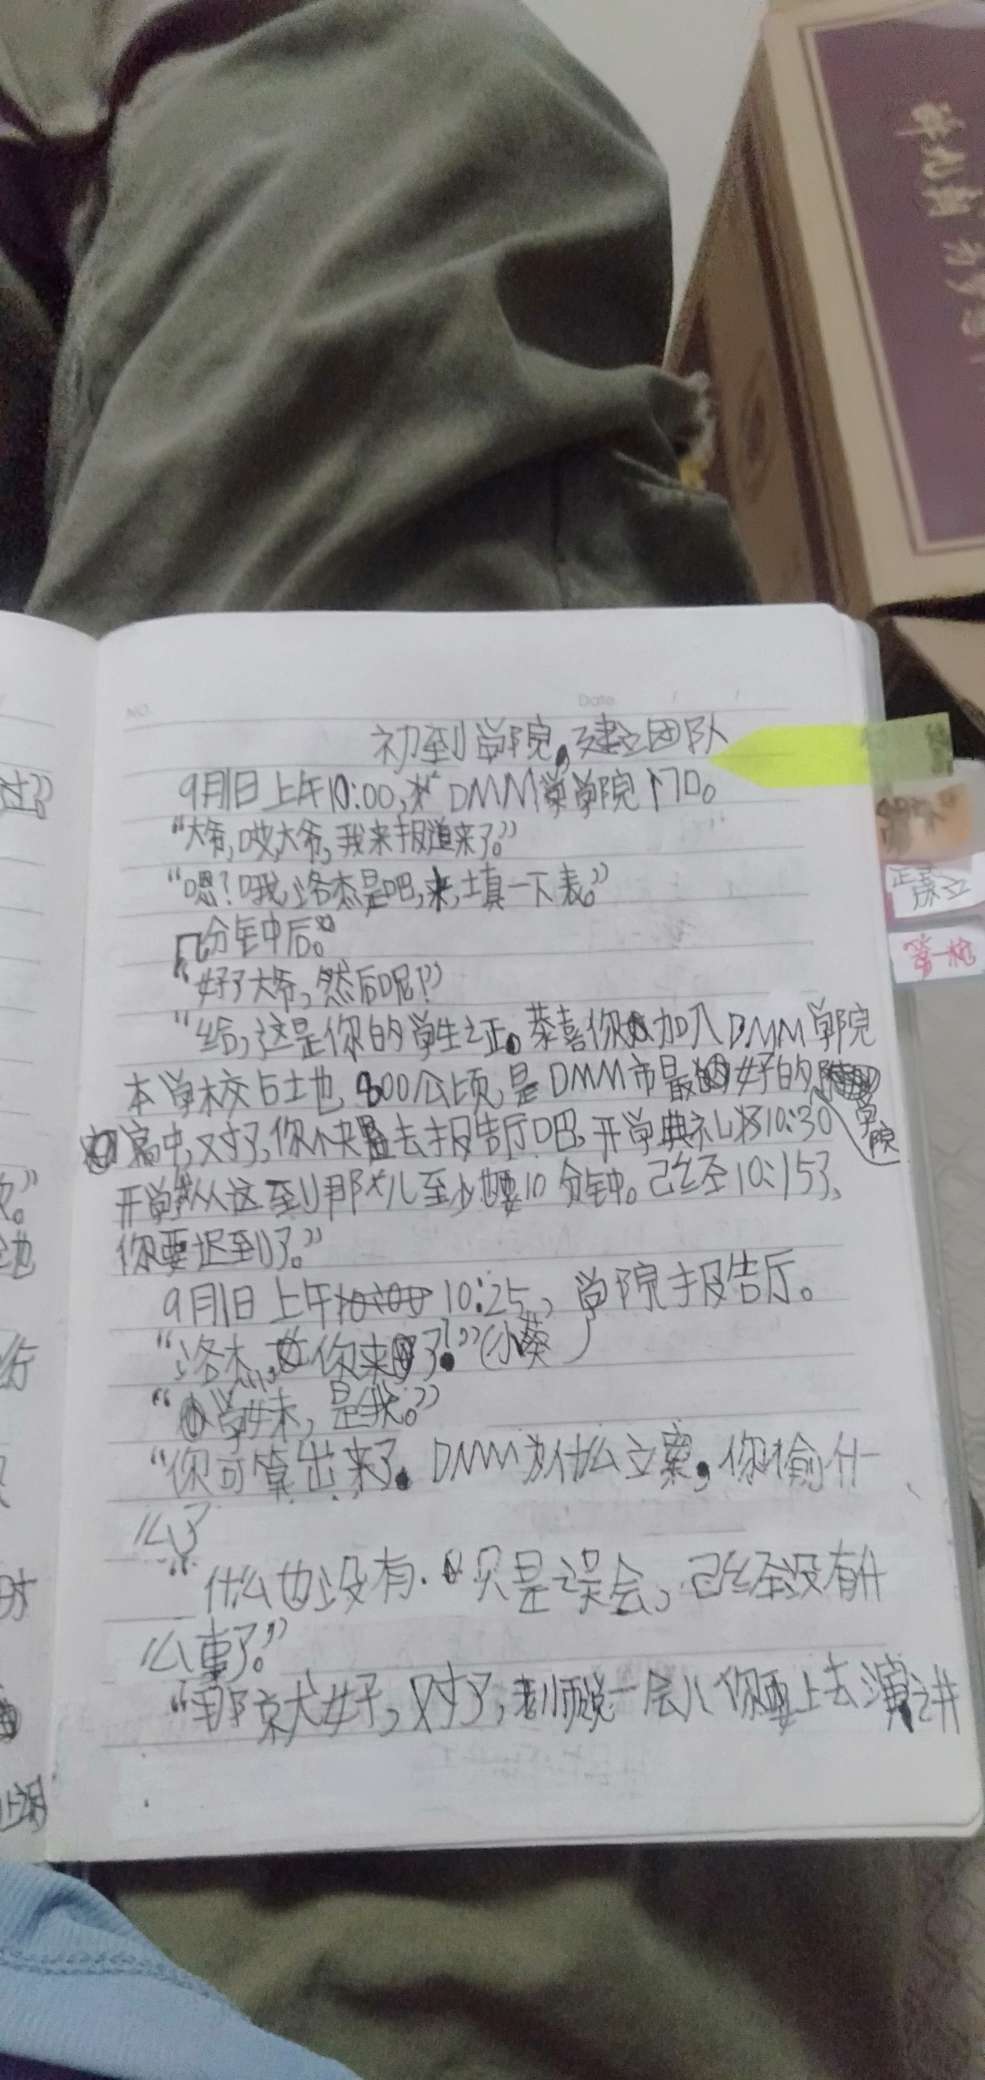 NO.
Date
初到学院,建立团队
9月1日上午10:00, DMM学院门口。
“大爷,哎,大爷,我来报道来了。”
“嗯?哦,洛杰是吧,来,填一下表。”
几分钟后。
“好了大爷,然后呢?”
“给,这是你的学生证。恭喜你加入DMM学院
本学校占土地800公顷,是DMM市最好的
学院
高中,对了,你快去报告厅吧,开学典礼将10:30
开学从这到那儿至少要10分钟。已经10:15了,
你要迟到了。”
9月1日上午10:25,学院报告厅。
“洛杰,你来了!”(小葵)
“学妹,是我。”
“你可算出来了。DMM为什么立案,你偷什
么了
“什么也没有.只是误会,已经没有什
么事了。”
“那就好,对了,老师说一会儿你要上去演讲
第一枪